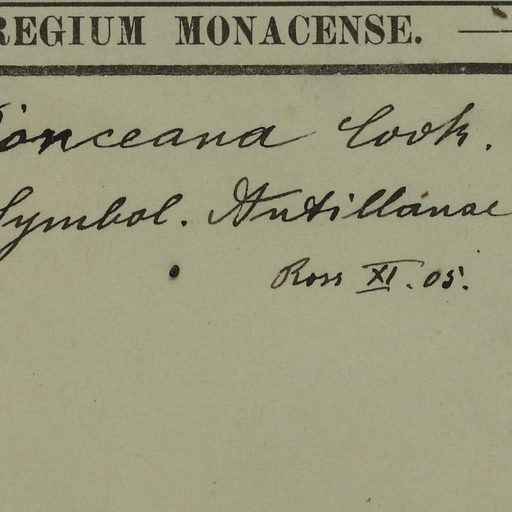 REGIUM MONACENSE.
onceana Cook.
Symbol. Antillanae
Ross XI. 05.